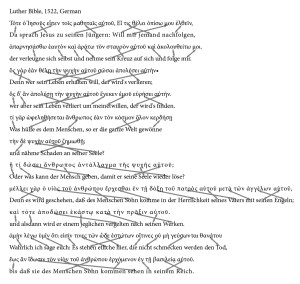 Luther Bible, 1522, German
Τότε ὁ Ἰησοῦς εἶπεν τοῖς μαθηταῖς αὐτοῦ, Εἴ τις θέλει ὀπίσω μου ἐλθεῖν,
Da sprach Jesus zu seinen Jüngern: Will mir jemand nachfolgen,
ἀπαρνησάσθω ἑαυτὸν καὶ ἀράτω τὸν σταυρὸν αὐτοῦ καὶ ἀκολουθείτω μοι.
der verleugne sich selbst und nehme sein Kreuz auf sich und folge mir.
ὃς γὰρ ἐὰν θέλῃ τὴν ψυχὴν αὐτοῦ σῶσαι ἀπολέσει αὐτήν•
Denn wer sein Leben erhalten will, der wird's verlieren;
ὃς δ' ἂν ἀπολέσῃ τὴν ψυχὴν αὐτοῦ ἕνεκεν ἐμοῦ εὑρήσει αὐτήν.
wer aber sein Leben verliert um meinetwillen, der wird's finden.
τί γὰρ ὠφεληθήσεται ἄνθρωπος ἐὰν τὸν κόσμον ὅλον κερδήσῃ
Was hülfe es dem Menschen, so er die ganze Welt gewönne
τὴν δὲ ψυχὴν αὐτοῦ ζημιωθῇ;
und nähme Schaden an seiner Seele?
ἢ τί δώσει ἄνθρωπος ἀντάλλαγμα τῆς ψυχῆς αὐτοῦ;
Oder was kann der Mensch geben, damit er seine Seele wieder löse?
μέλλει γὰρ ὁ υἱὸς τοῦ ἀνθρώπου ἔρχεσθαι ἐν τῇ δόξῃ τοῦ πατρὸς αὐτοῦ μετὰ τῶν ἀγγέλων αὐτοῦ,
Denn es wird geschehen, daß des Menschen Sohn komme in der Herrlichkeit seines Vaters mit seinen Engeln;
καὶ τότε ἀποδώσει ἑκάστῳ κατὰ τὴν πρᾶξιν αὐτοῦ.
und alsdann wird er einem jeglichen vergelten nach seinen Werken.
ἀμὴν λέγω ὑμῖν ὅτι εἰσίν τινες τῶν ὧδε ἑστώτων οἵτινες οὐ μὴ γεύσωνται θανάτου
Wahrlich ich sage euch: Es stehen etliche hier, die nicht schmecken werden den Tod,
ἕως ἂν ἴδωσιν τὸν υἱὸν τοῦ ἀνθρώπου ἐρχόμενον ἐν τῇ βασιλείᾳ αὐτοῦ.
bis daß sie des Menschen Sohn kommen sehen in seinem Reich.